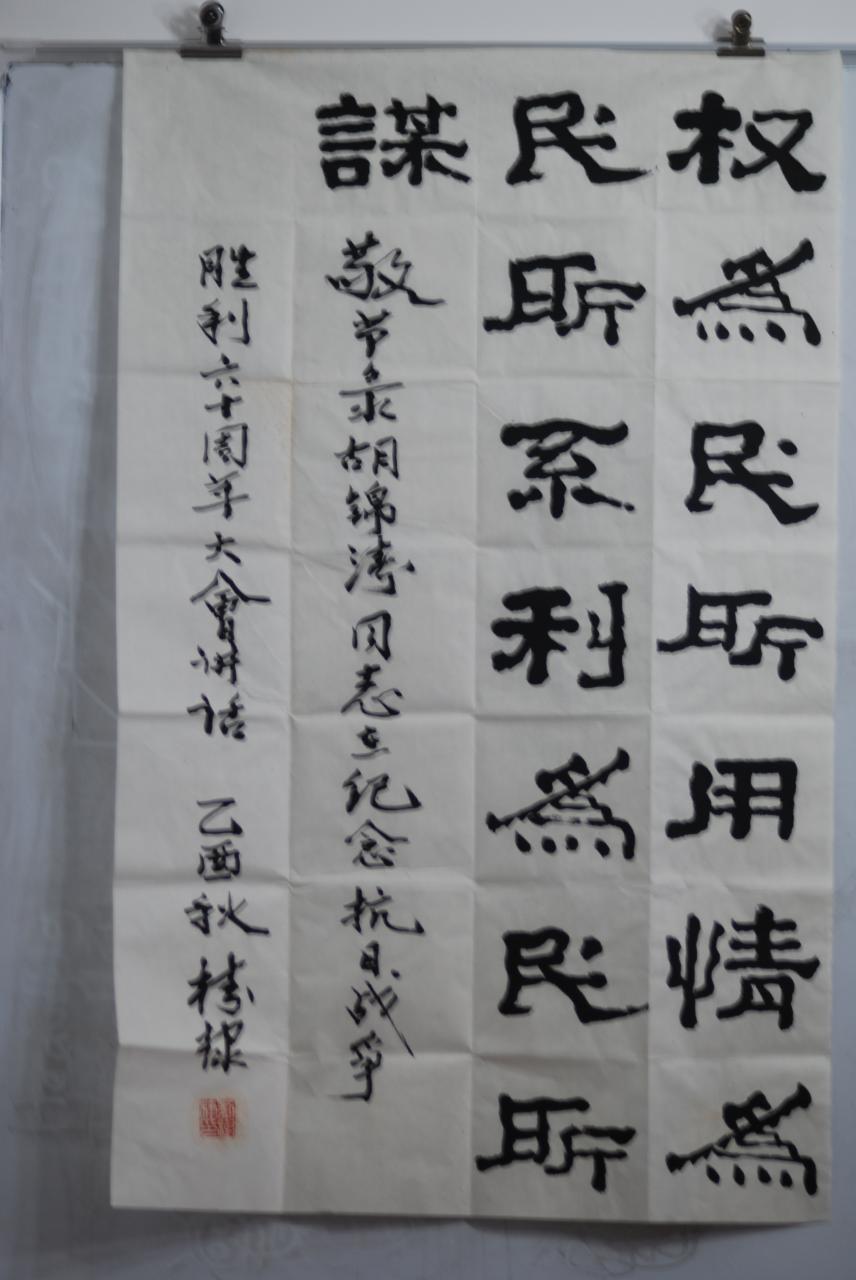 权為民所用情為
民所系利為民所
謀
敬节录胡锦涛同志在纪念抗日战争
胜利六十周年大會讲话 乙酉秋